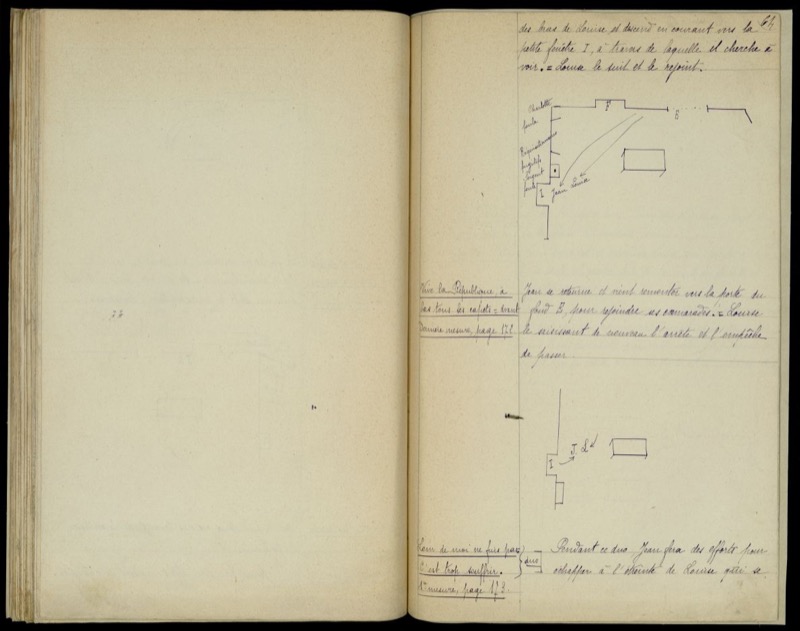 64
des bras de Louise et descend en courant vers la
petite fenêtre I, à travers de laquelle il cherche à
voir. = Louise le suit et le rejoint.
Charlotte
foule
F
E
I
Jean Louise
Vive la République, à
bas tous les = avant
dernière mesure, page 172
Jean se retourne et vient remonter vers la porte du
fond E, pour rejoindre ses camarades. = Louise
le saisissant de nouveau l'arrête et l'empêche
de passer.
28
I
J L
Loin de moi ne fuis pas
C'est trop souffrir.
1re mesure, page 173.
duo
Pendant ce duo Jean fera des efforts pour
échapper à l'étreinte de Louise qui se